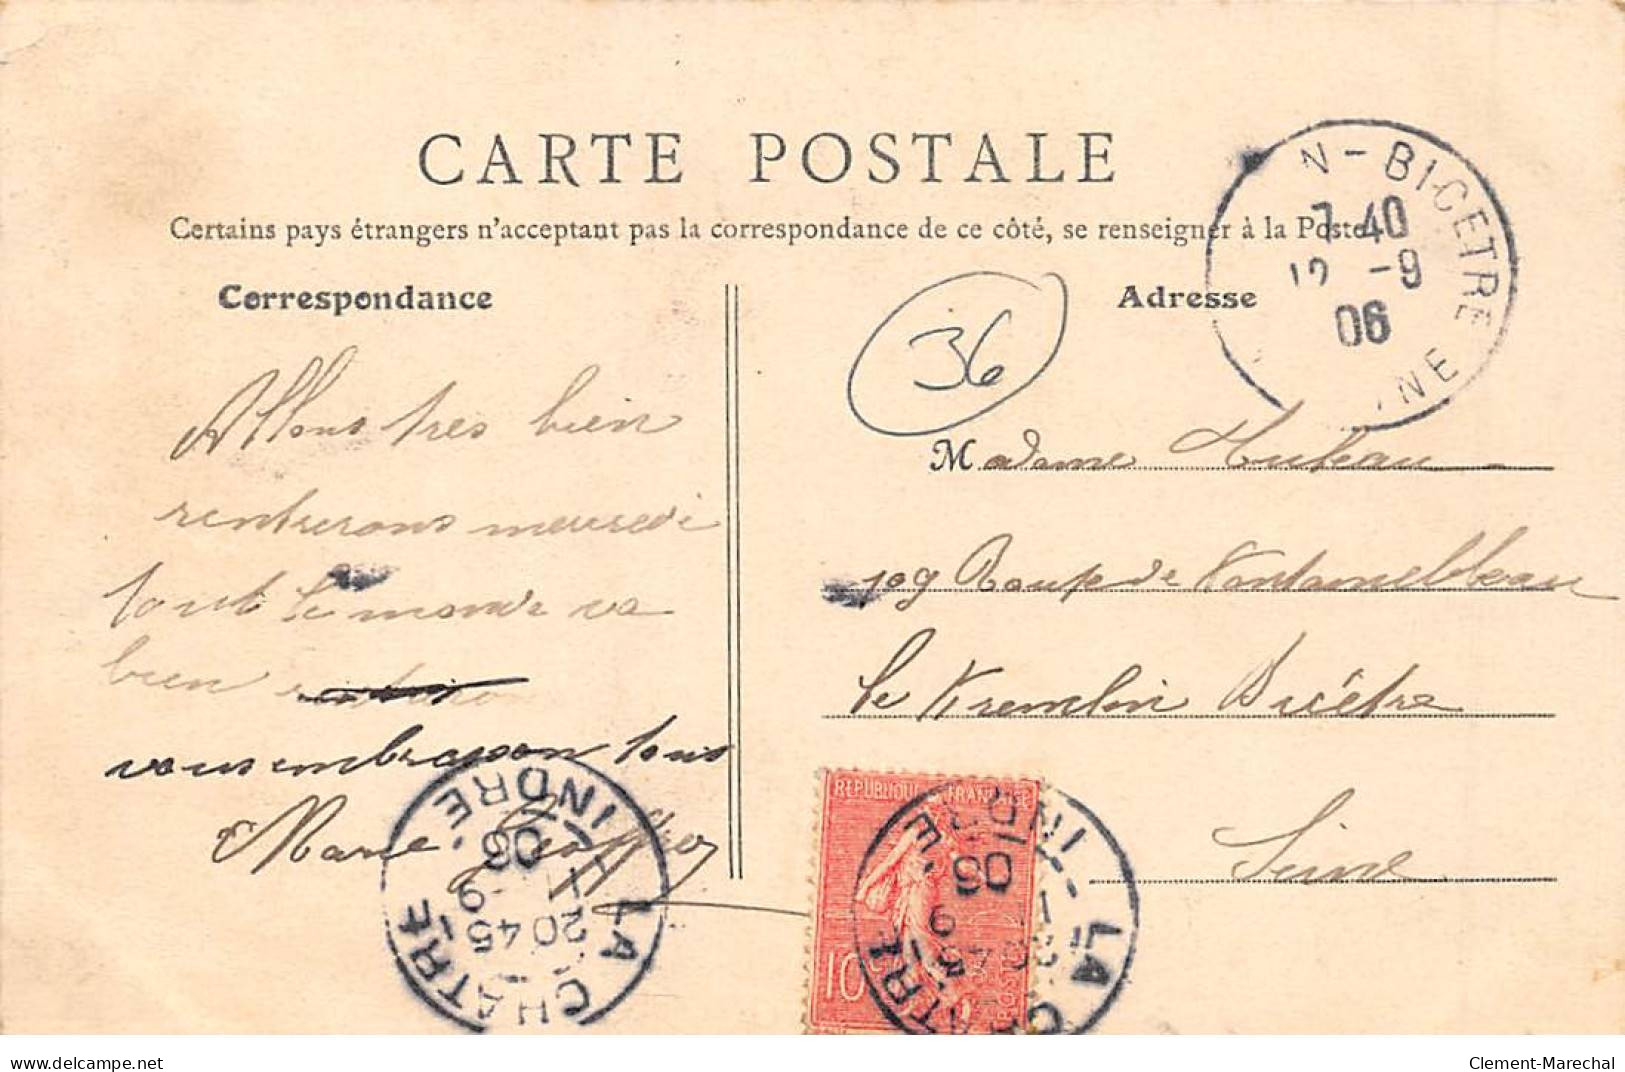 CARTE POSTALE
Certains pays étrangers n'acceptent pas la correspondance de ce côté, se renseigner à la Poste
Correspondance
Adresse
N-BICETRE
7 40
12 -9
06
INE
36
Allons tres bien
rentrerons mercredi
tout le monde va
bien
vous embrasson tous
Marie
Madame
109 Route de Fontainebleau
le Kremlin Bicêtre
Seine
REPUBLIQUE FRANÇAISE
10c
POSTES
LA CHATRE INDRE
20 45
11 -9
06
LA CHATRE INDRE
20 45
11 9
06
delcampe.net
Clement-Marechal